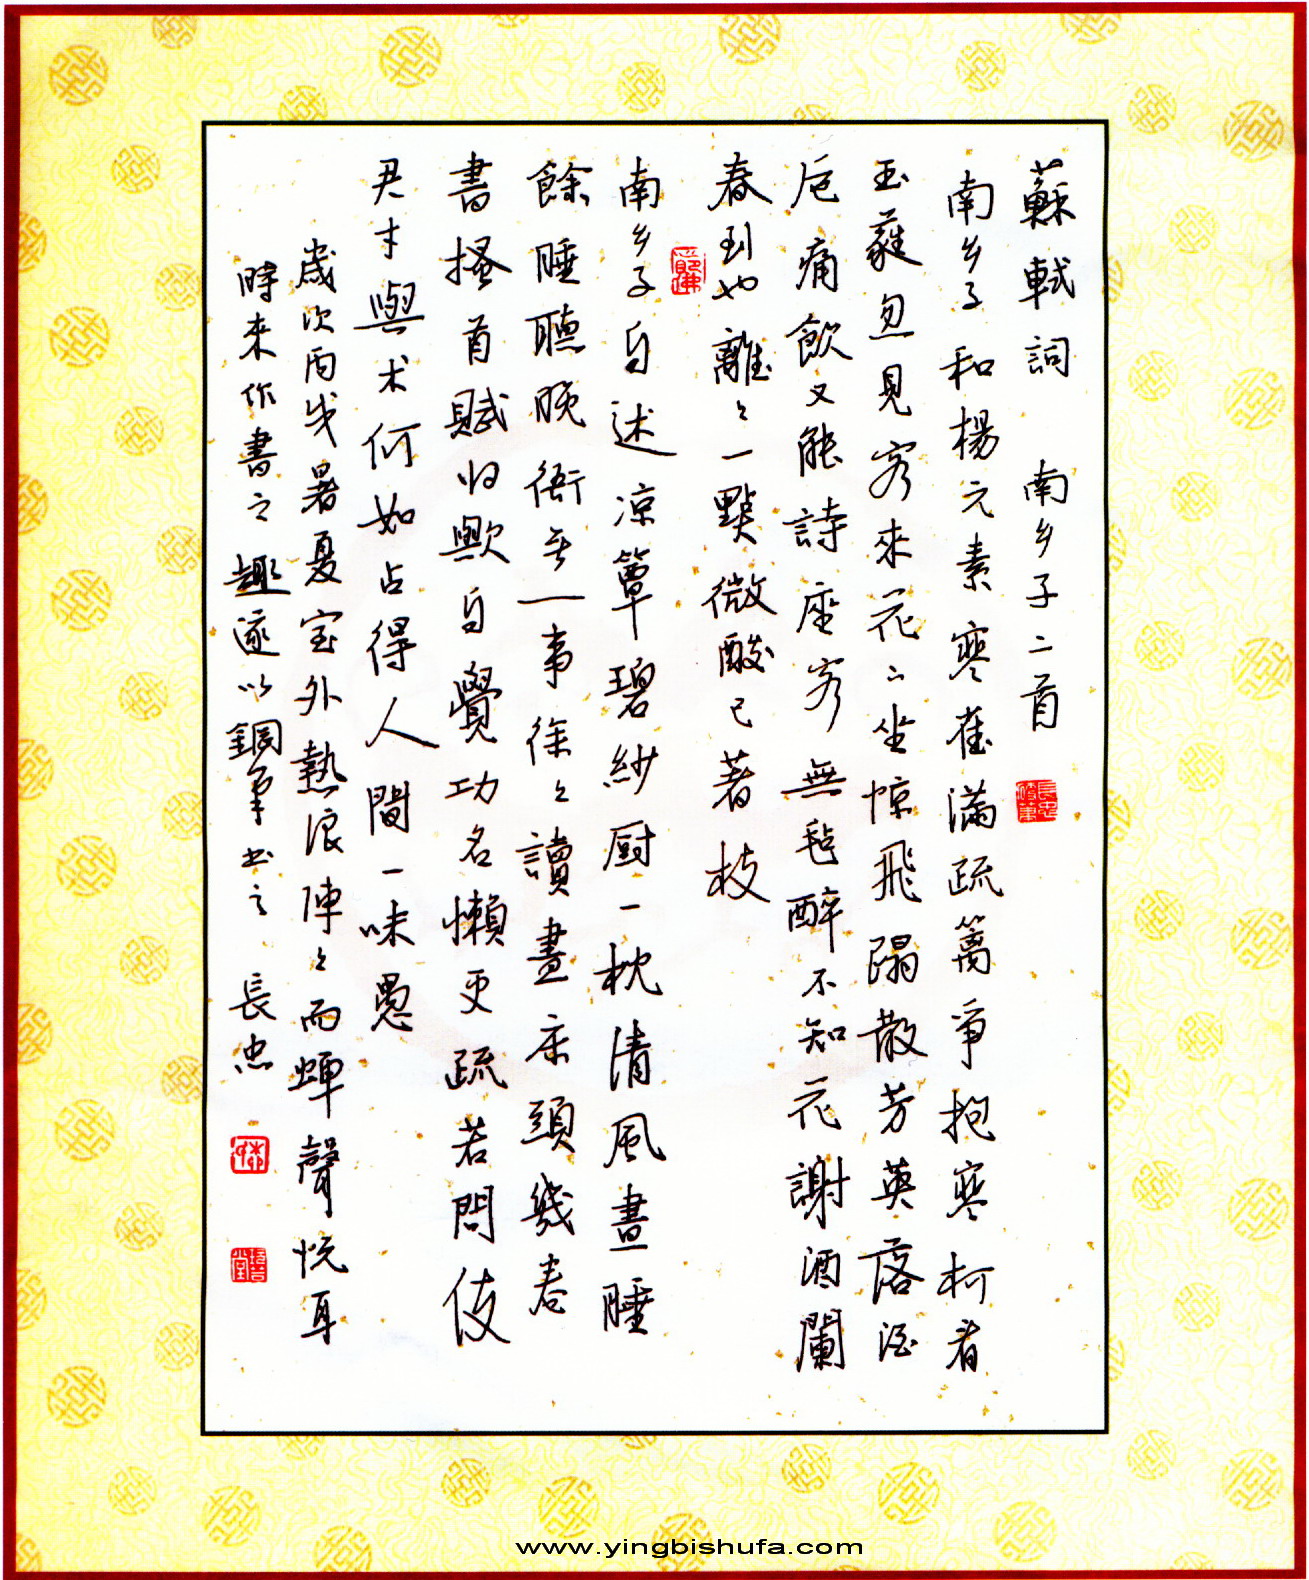 蘇軾詞 南乡子二首
南乡子和楊元素寒雀滿疏篱爭抱寒柯看
玉蕤忽見客來花下坐惊飛蹋散芳英落酒
卮痛飲又能詩座客無毡醉不知花謝酒闌
春到也離々一點微酸已著枝
南乡子自述凉簟碧紗厨一枕清風晝睡
餘睡聽晚衙無一事徐々讀盡床頭幾卷
書搔首賦归歟自覺功名懶更疏若問使
君才與术何如占得人間一味愚
歲次丙戌暑夏室外熱浪陣々而蟬聲悦耳
時来作書之趣遂以鋼筆书之 長忠
www.yingbishufa.com